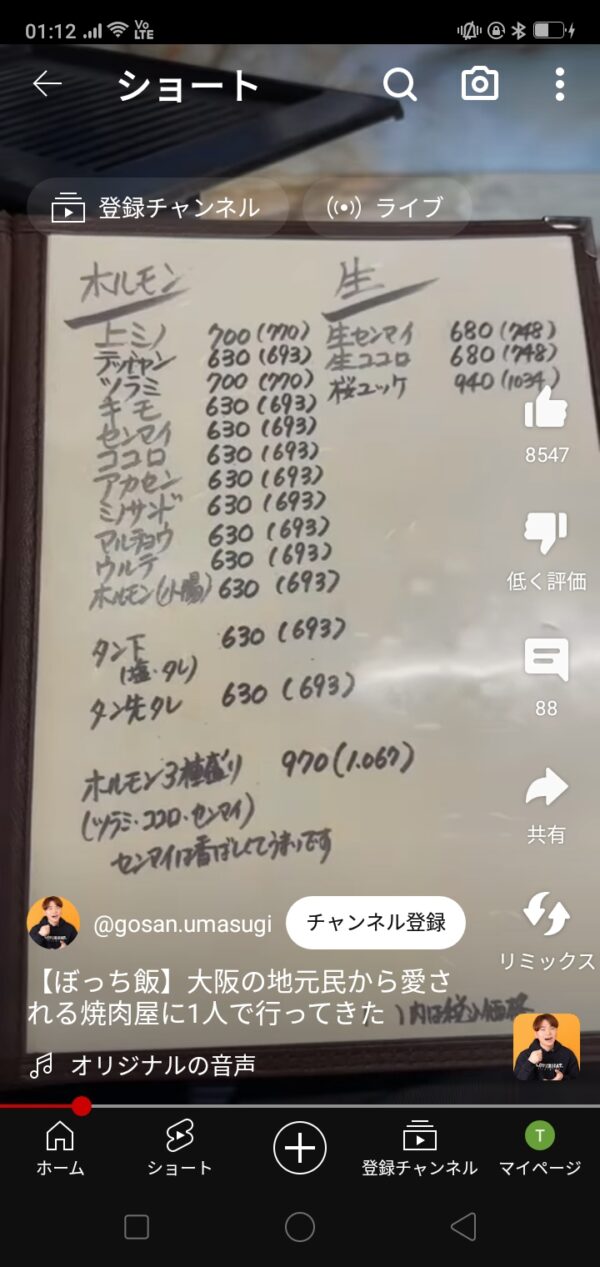 01:12
Vo LTE
ショート
登録チャンネル
ライブ
ホルモン
上ミノ 700(770)
テッチャン 630(693)
ツラミ 700(770)
キモ 630(693)
センマイ 630(693)
ココロ 630(693)
アカセン 630(693)
ミノサンド 630(693)
マルチョウ 630(693)
ウルテ 630(693)
ホルモン(小腸) 630(693)
タン下 630(693)
(塩・タレ)
タン先タレ 630(693)
ホルモン3種盛り 970(1.067)
(ツラミ・ココロ・センマイ)
センマイは香ばしくてうまいです
生
生センマイ 680(748)
生ココロ 680(748)
桜ユッケ 940(1034)
8547
低く評価
88
共有
リミックス
@gosan.umasugi
チャンネル登録
【ぼっち飯】大阪の地元民から愛さ
れる焼肉屋に1人で行ってきた
)内は税込価格
オリジナルの音声
ホーム
ショート
登録チャンネル
T
マイページ